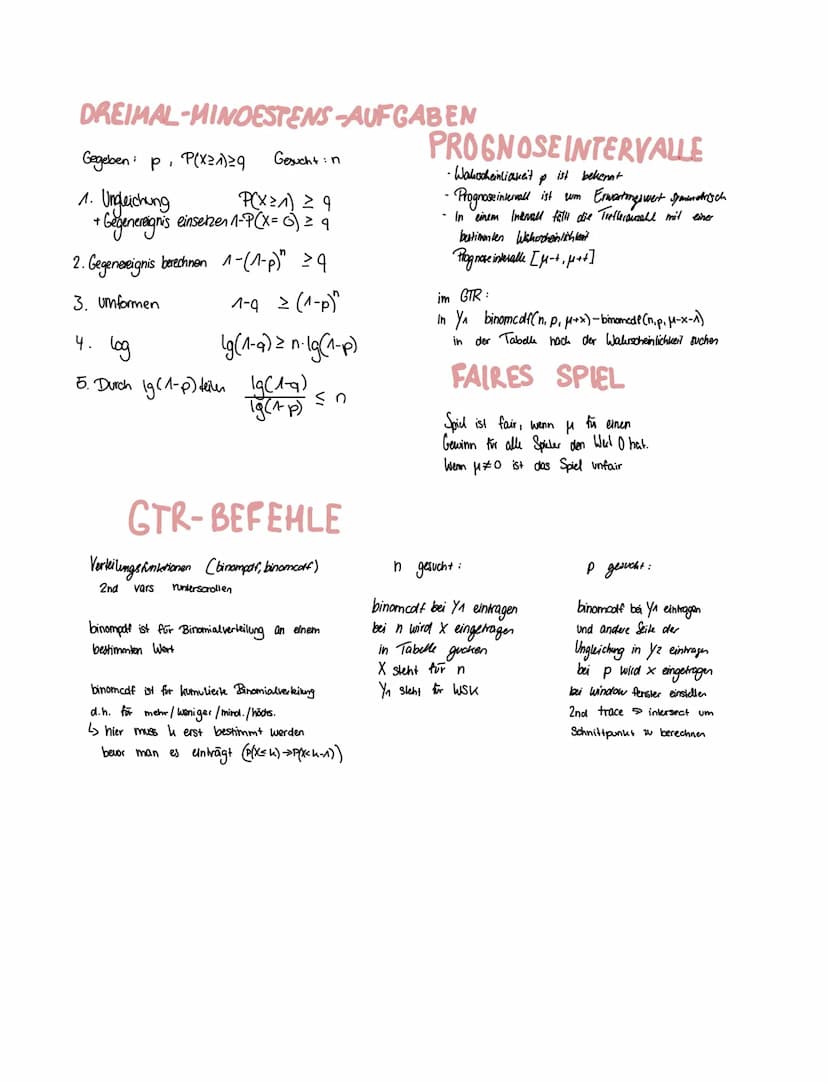 DREIMAL-MINDESTENS-AUFGABEN
Gegeben: p, P(X≥1)≥q Gesucht: n
1. Ungleichung P(X≥1) ≥ q
+ Gegenereignis einsetzen 1-P(X=0) ≥ q
2. Gegenereignis berechnen 1-(1-p)^n ≥ q
3. Umformen 1-q ≥ (1-p)^n
4. log lg(1-q) ≥ n·lg(1-p)
5. Durch lg(1-p) teilen lg(1-q)/lg(1-p) ≤ n
PROGNOSEINTERVALLE
- Wahrscheinlichkeit p ist bekannt
- Prognoseintervall ist um Erwartungswert symmetrisch
- In einem Intervall fällt die Trefferanzahl mit einer
bestimmten Wahrscheinlichkeit
Prognoseintervalle [μ-t, μ+t]
im GTR:
In Y1 binomcdf(n, p, μ+x)-binomcdf(n,p, μ-x-1)
in der Tabelle nach der Wahrscheinlichkeit suchen
FAIRES SPIEL
Spiel ist fair, wenn μ für einen
Gewinn für alle Spieler den Wert 0 hat.
Wenn μ≠0 ist das Spiel unfair
GTR-BEFEHLE
Verteilungsfunktionen (binompdf, binomcdf)
2nd vars runterscrollen
binompdf ist für Binomialverteilung an einem
bestimmten Wert
binomcdf ist für kumulierte Binomialverteilung
d.h. für mehr/weniger/mind./höchs.
↳ hier muss k erst bestimmt werden
bevor man es einträgt (P(X≤k)→P(X<k-1))
n gesucht:
binomcdf bei Y1 eintragen
bei n wird X eingetragen
in Tabelle gucken
X steht für n
Y1 steht für WSK
p gesucht:
binomcdf bei Y1 eintragen
und andere Seite der
Ungleichung in Y2 eintragen
bei p wird x eingetragen
bei window fenster einstellen
2nd trace ⇒ intersect um
Schnittpunkt zu berechnen